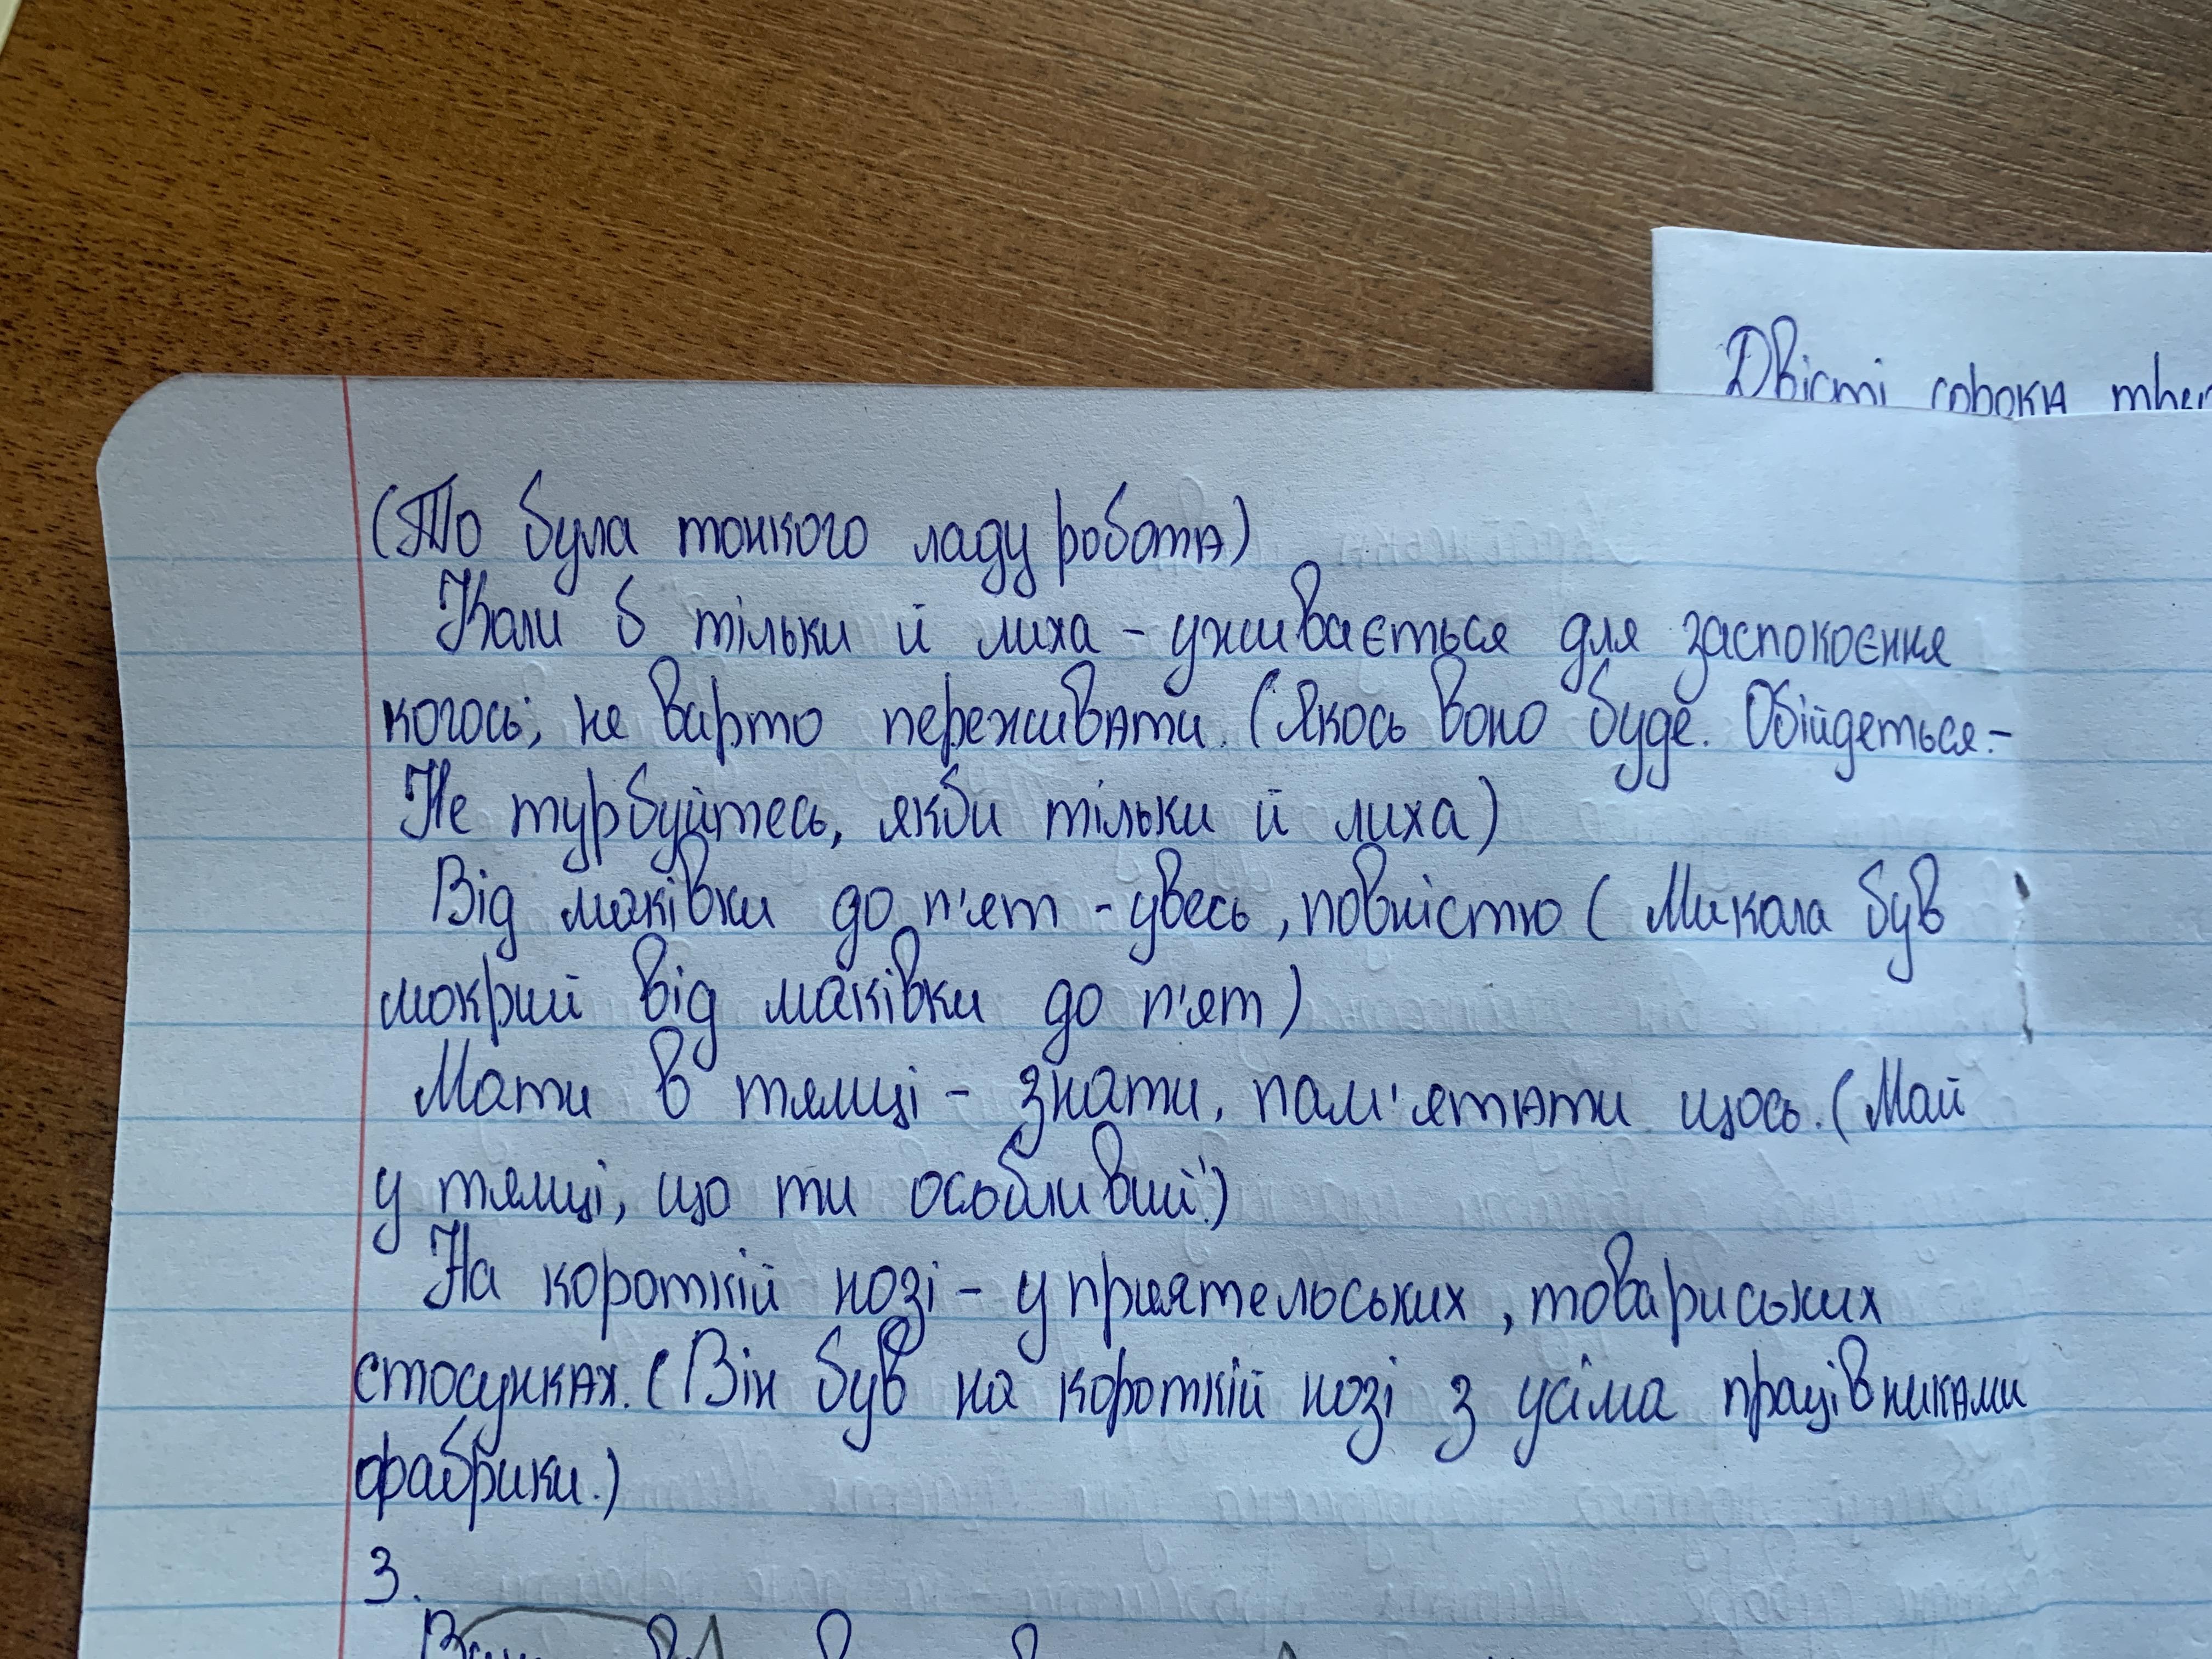 Двісті сорока
(То була тонкого ладу робота)
Коли б тільки й лиха - уживається для заспокоєння
когось; не варто переживати. (Якось воно буде. Обійдеться.-
Не турбуйтесь, якби тільки й лиха)
Від маківки до п'ят - увесь, повністю ( Микола був
мокрий від маківки до п'ят)
Мати в тямці - знати, пам'ятати щось. (Май
у тямці, що ти особливий!)
На короткій нозі - у приятельських, товариських
стосунках. (Він був на короткій нозі з усіма працівниками
фабрики.)
3.